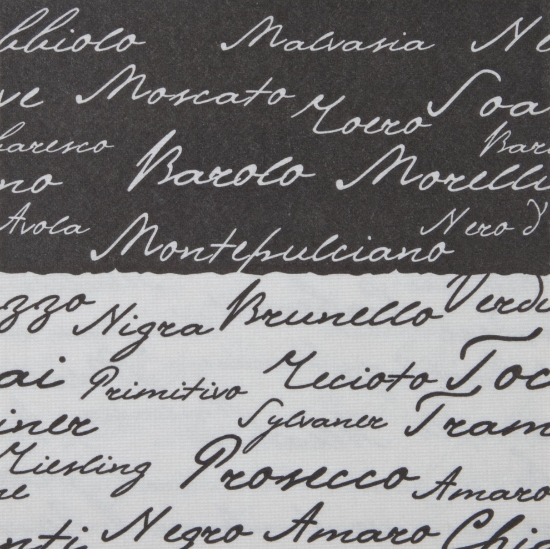 bbiolo Malvasia Ne
ve Moscato Roero Soa
baresco Bar
no Barolo Morelli
Avola Nero d'
Montepulciano
zzo Nigra Brunello Verdu
ai Primitivo Recioto Toc
iner Sylvaner Tram
Riesling Prosecco Amaro
ne
nti Negro Amaro Chia